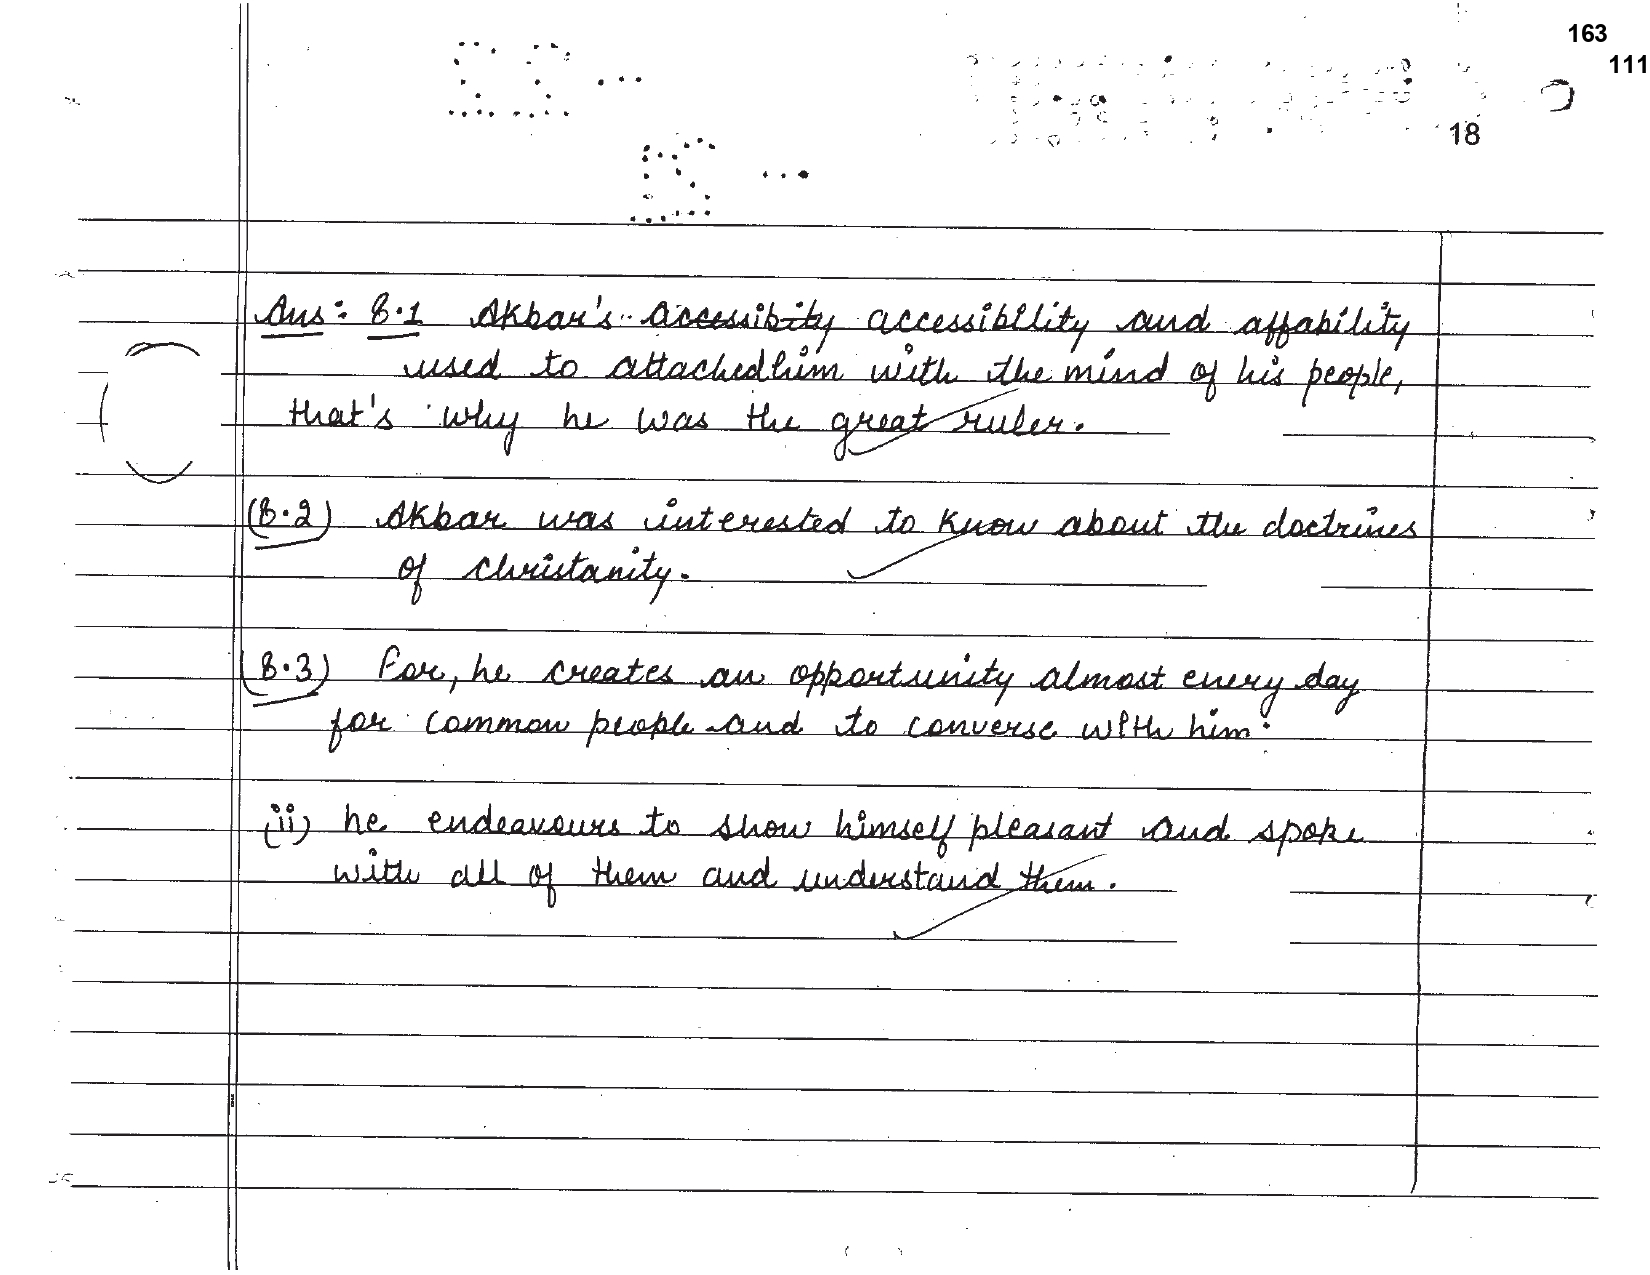 163
111
18
Ans: 8.1 Akbar's accessibity accessibility and affability
used to attached him with the mind of his people,
that's why he was the great ruler.
(8.2) Akbar was interested to know about the doctrines
of christanity.
(8.3) For, he creates an opportunity almost every day
for common people and to converse with him.
(ii) he endeavours to show himself pleasant and spoke
with all of them and understand them.